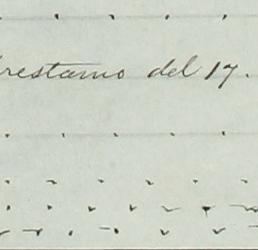 restamo del 17.